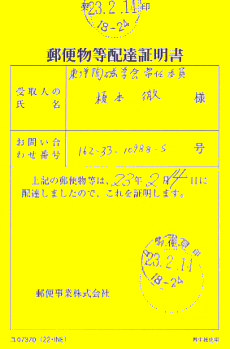 23.2.14
18-24
郵便物等配達証明書
受取人の
氏 名
東洋陶磁学会常任委員
様
お問い合
わせ番号
162-33-10988-5 号
上記の郵便物等は、23年2月14日に
配達しましたので、これを証明します。
23.2.14
18-24
郵便事業株式会社